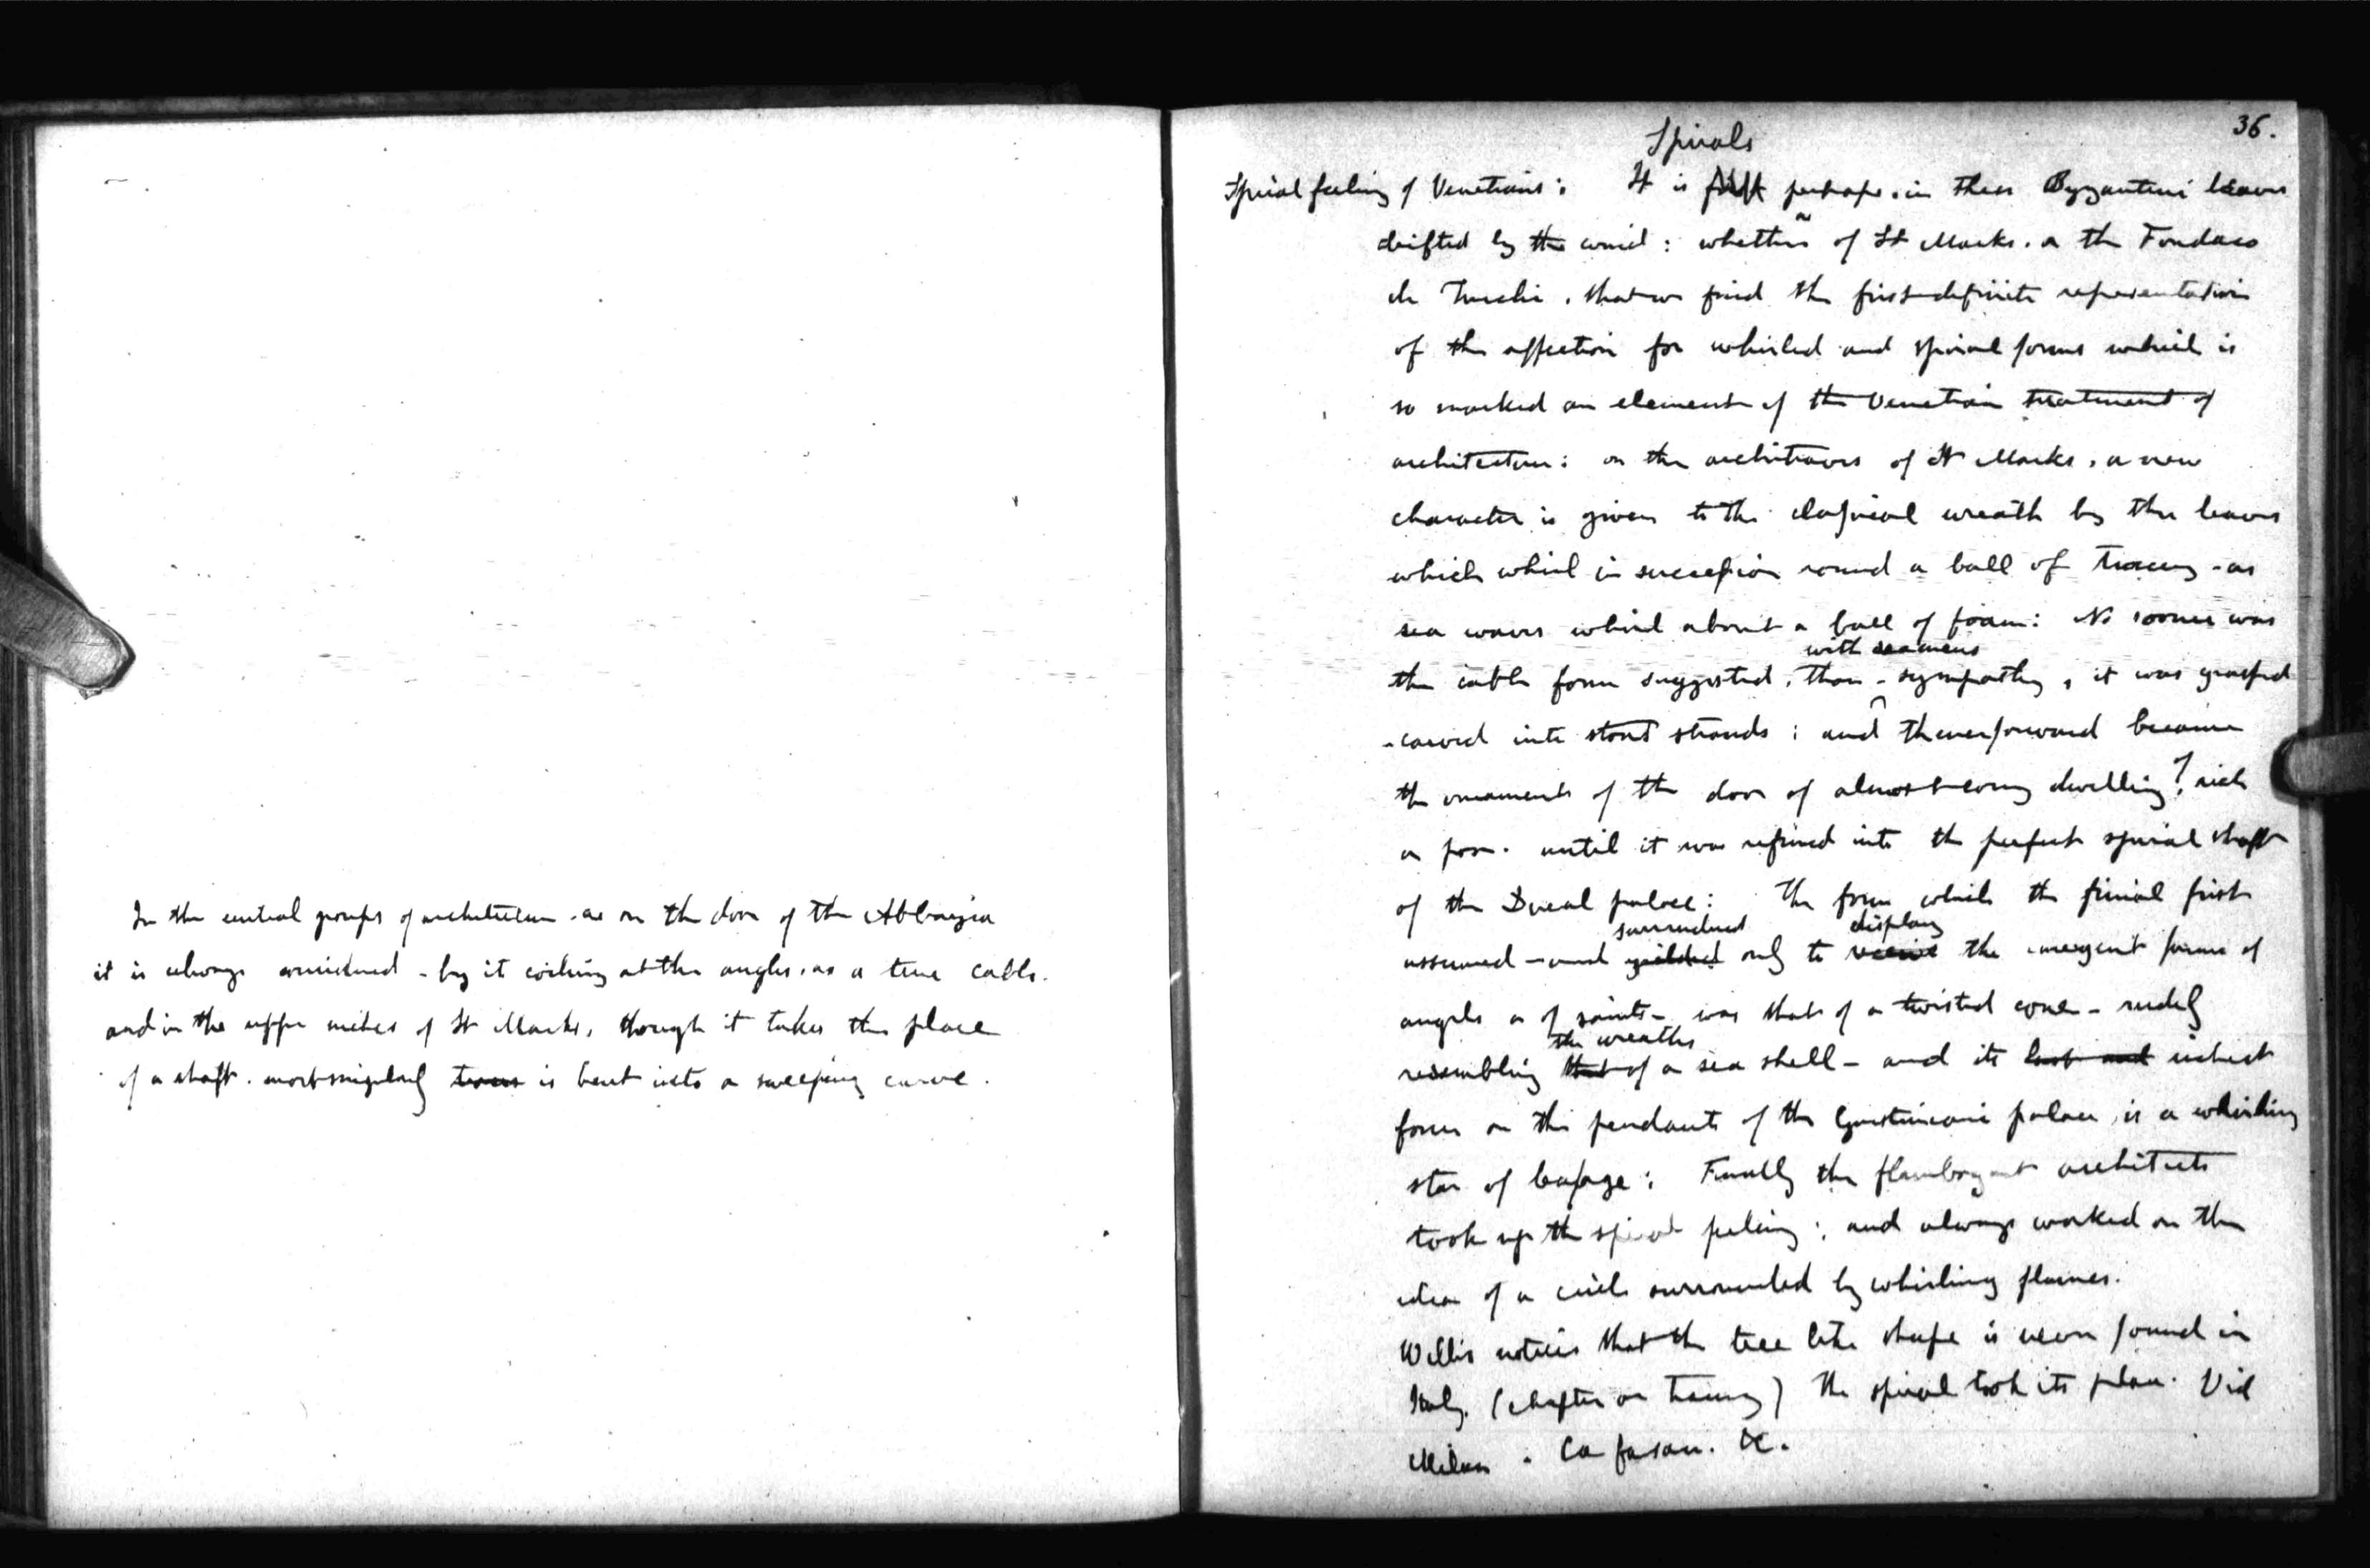 In the central groups of architecture. as on the door of the Abbazia
it is always evidenced - by it coiling at the angles. as a true cable.
and in the upper niches of St Marks, though it takes the place
of a shaft. most singularly is bent into a sweeping curve.
36.
Spirals
Spiral feeling of Venetians: It is first perhaps. in these Byzantine leaves
drifted by the wind: whether of St Marks. or the Fondaco
de Turchi. that we find the first definite representation
of the affection for whirled and spiral forms which is
so marked an element of the Venetian treatment of
architecture: on the architraves of St Marks. a new
character is given to the classical wreath by the leaves
which whirl in succession round a ball of tracery - as
sea waves whirl about a ball of foam: No sooner was
with seamens
the cable form suggested. than - sympathy, it was grasped
- carved into stout strands: and thenceforward became
the ornament of the door of almost every dwelling? rich
or poor. until it was refined into the perfect spiral shaft
of the Ducal palace: The form which the finial first
surrendered display
assumed - and yielded only to receive the emergent forms of
angels or of saints - was that of a twisted cone - rudely
the wreaths
resembling that of a sea shell - and its last and richest
form on the pendants of the Giustiniani palace, is a whirling
star of leafage: Finally the flamboyant architects
took up the spiral feeling: and always worked on the
idea of a circle surrounded by whirling flames.
Willis notices that the tree like shape is never found in
Italy. (chapter on Tracery) The spiral took its place. Vid
Milan. Ca fasan. &c.